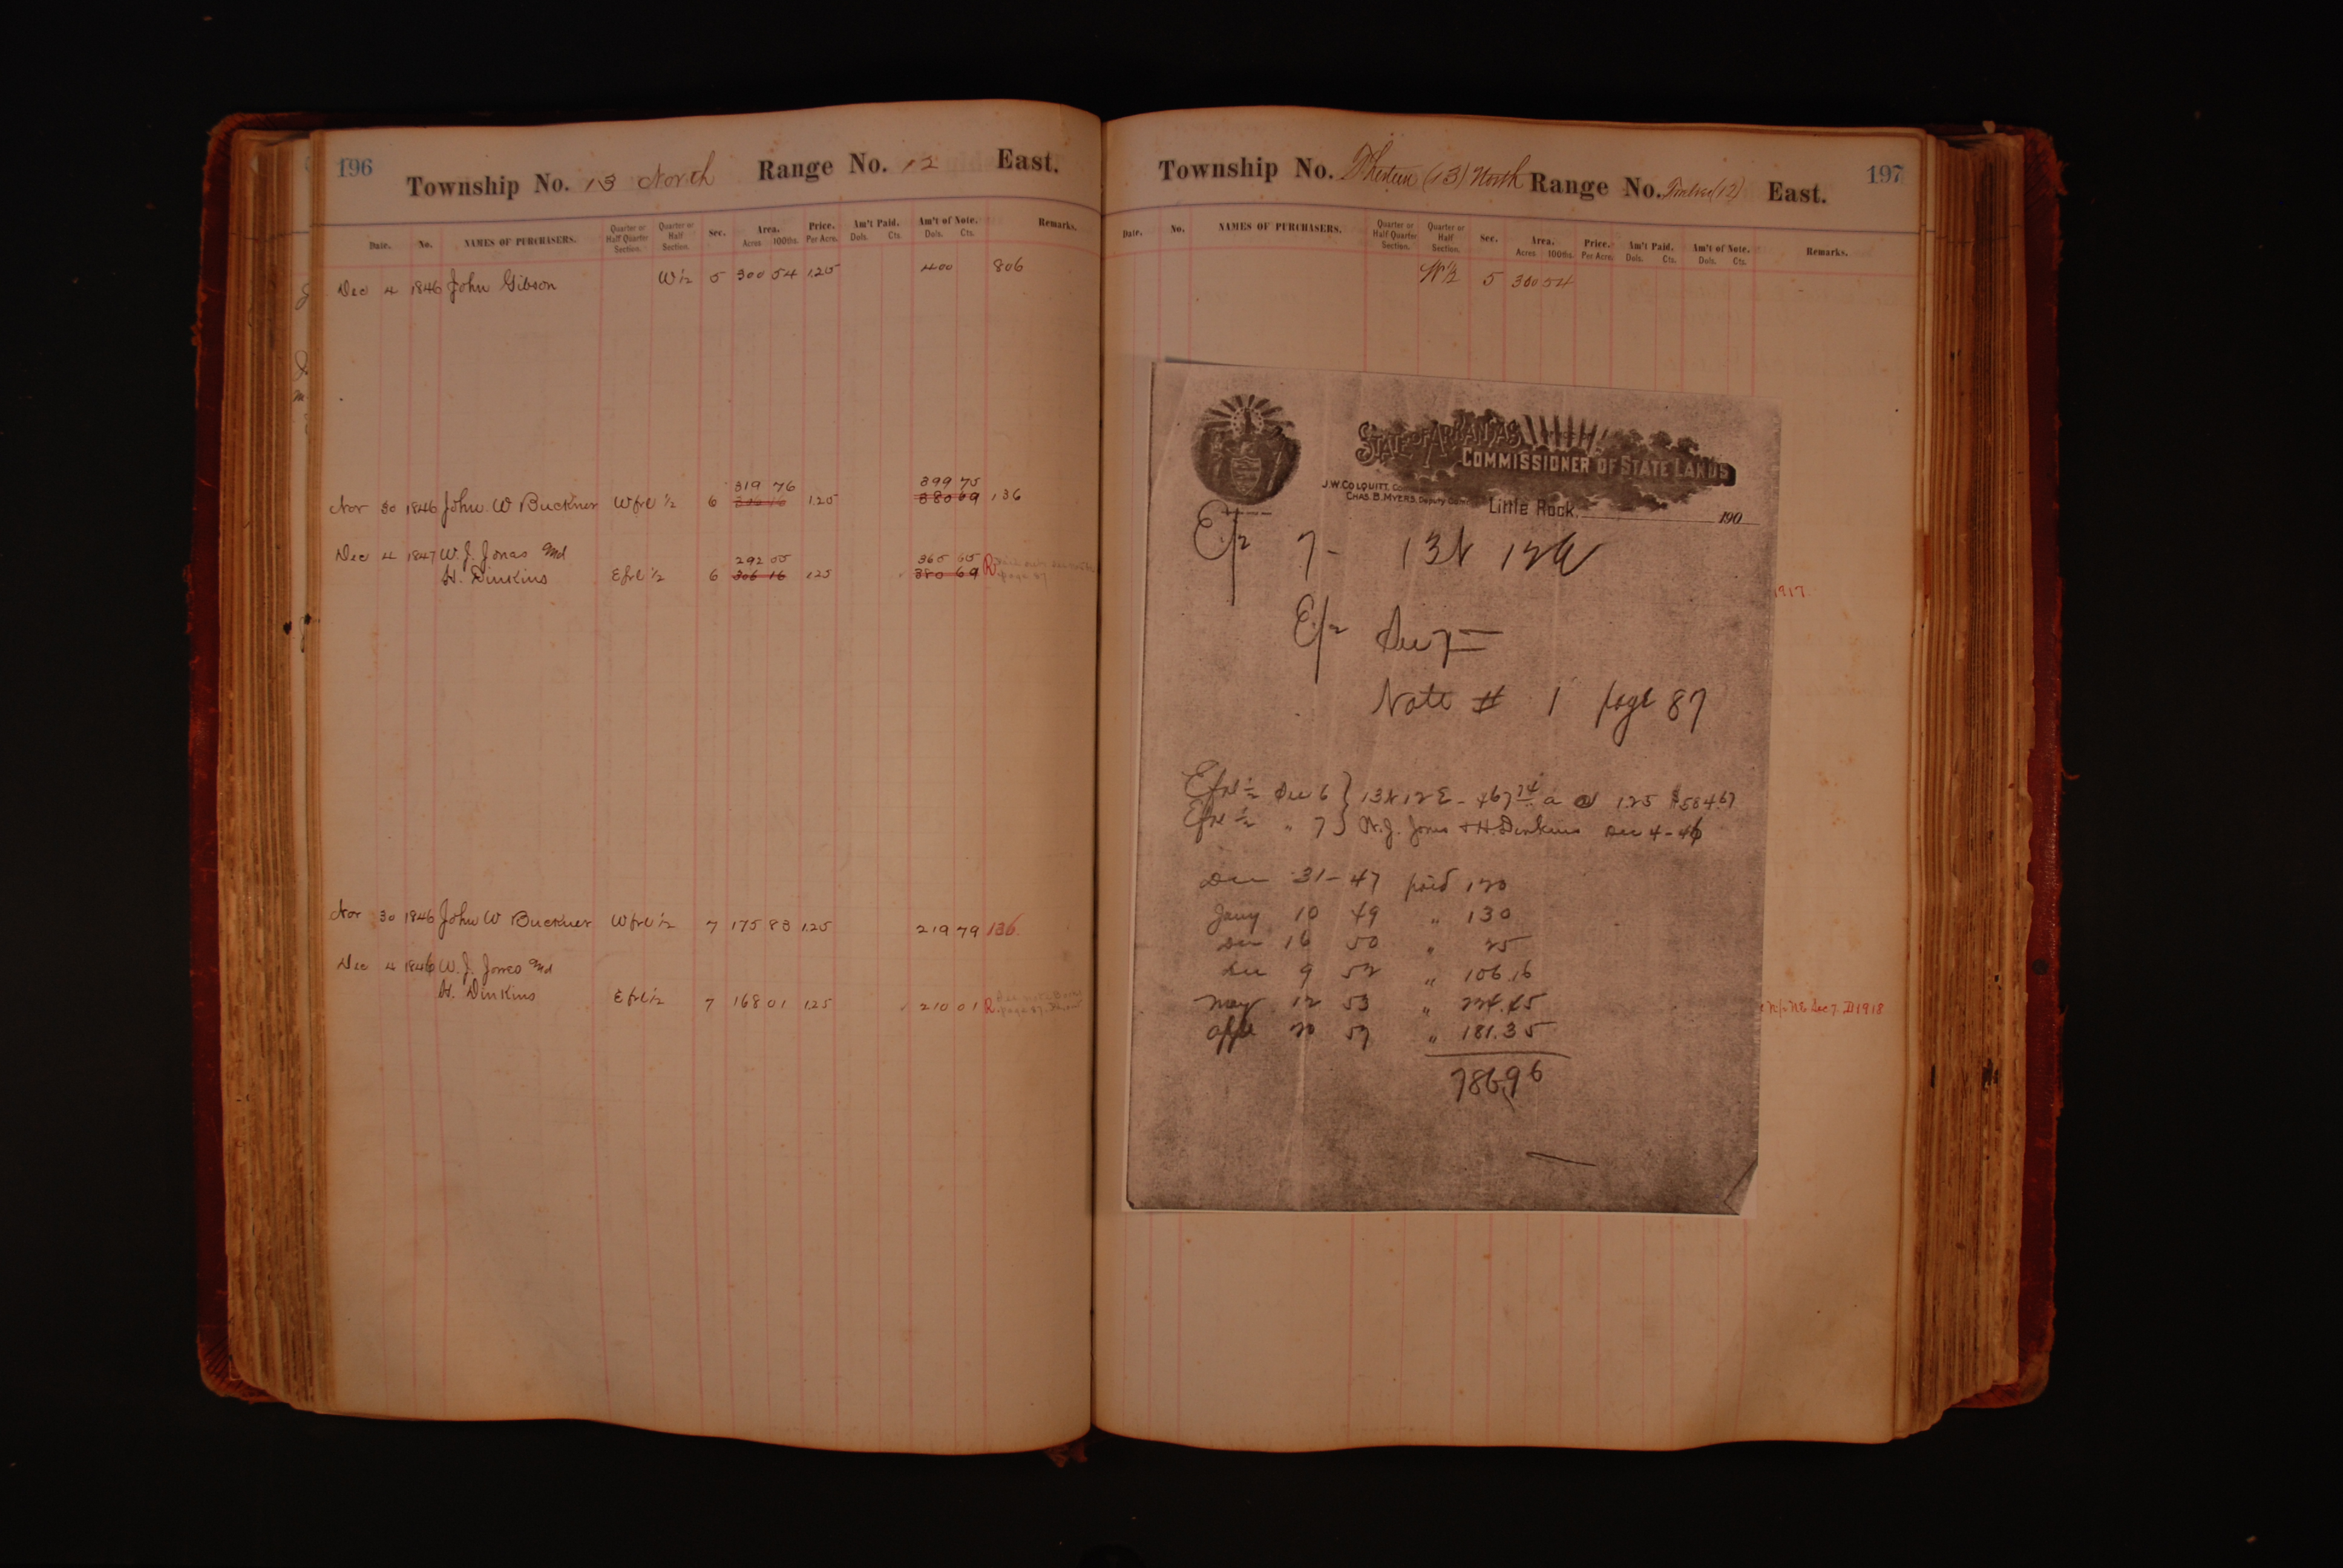 196
Township No. 13 North Range No. 12 East.
Date. No. NAMES OF PURCHASERS. Quarter or Half Quarter Section. Quarter or Half Section. Sec. Area. Acres 100ths. Price. Per Acre. Am't Paid. Dols. Cts. Am't of Note. Dols. Cts. Remarks.
Dec 4 1846 John Gibson W½ 5 300 54 1.25 400 806
319 76 399 75
Nor 30 1846 John W Buckner Wfrl ½ 6 306 16 1.25 380 69 136
Dec 4 1847 W. J. Jonas and 292 55 365 65
H. Dinkins Efrl ½ 6 306 16 125 380 69 R
Nor 30 1846 John W Buckner Wfrl ½ 7 175 83 1.25 219 79 136.
Dec 4 1846 W. J. Jones and
H. Dinkins Efrl ½ 7 168 01 125 210 01 R
197
Township No. Thirteen (13) North Range No. Twelve (12) East.
Date. No. NAMES OF PURCHASERS. Quarter or Half Quarter Section. Quarter or Half Section. Sec. Area. Acres 100ths. Price. Per Acre. Am't Paid. Dols. Cts. Am't of Note. Dols. Cts. Remarks.
W½ 5 300 54
STATE OF ARKANSAS
COMMISSIONER OF STATE LANDS
J.W. COLQUITT,
CHAS. B. MYERS, Deputy
Little Rock, 190
E/2 7- 13N 12E
E/2 Sec 7
Note # 1 page 87
Efrl ½ Sec 6 } 13N 12E - 467 74 a @ 1.25 $584.67
Efrl ½ " 7 } W. J. Jones + H. Dinkins Dec 4-46
Dec 31-47 paid 120
Jany 10 49 " 130
Dec 16 50 " 25
Dec 9 52 " 106.16
May 12 53 " 224.45
Apl 20 57 " 181.35
786.96
1917
N/2 NE Sec 7. D1918